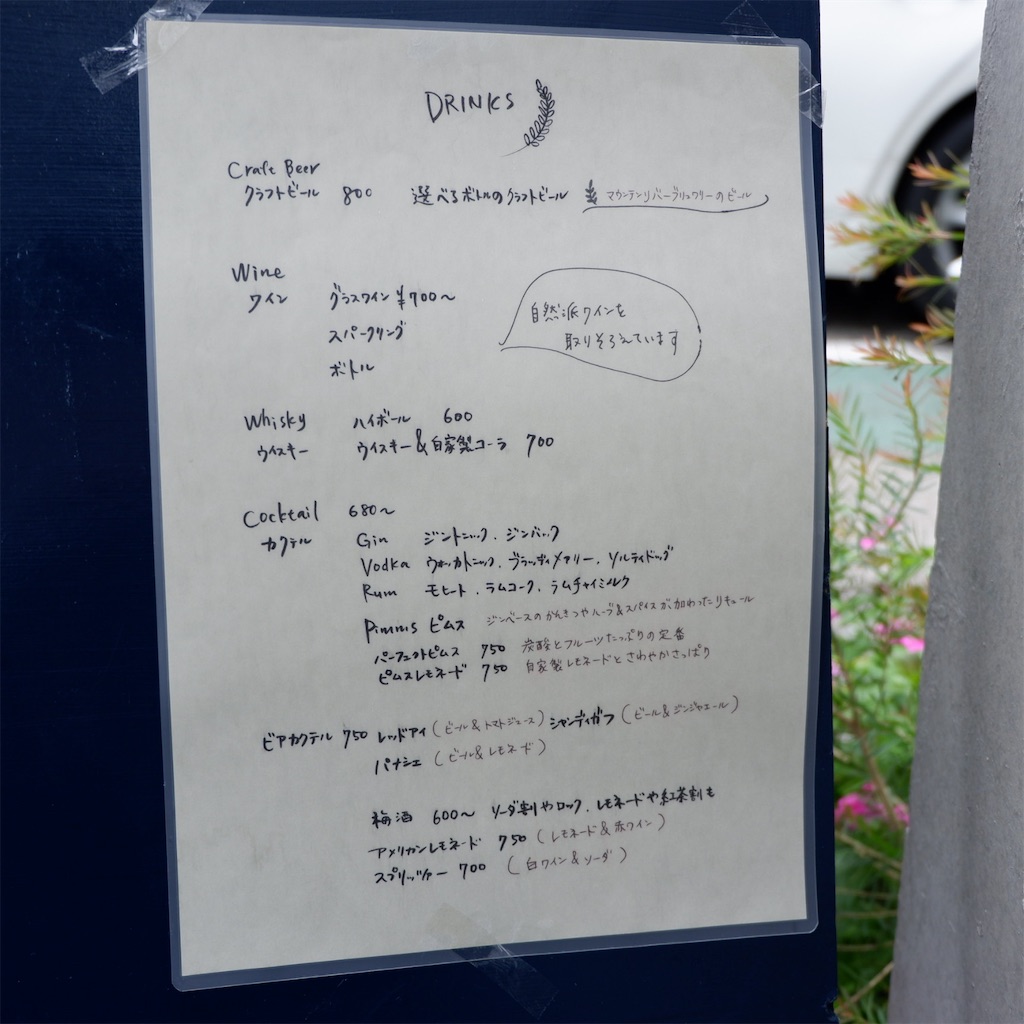 DRINKS
Craft Beer
クラフトビール 800 選べるボトルのクラフトビール マウンテンリバーブリュワリーのビール
Wine
ワイン グラスワイン ¥700〜
スパークリング
ボトル
自然派ワインを
取りそろえています
Whisky ハイボール 600
ウイスキー ウイスキー&自家製コーラ 700
Cocktail 680〜
カクテル Gin ジントニック、ジンバック
Vodka ウォッカトニック、ブラッディメアリー、ソルティドッグ
Rum モヒート、ラムコーク、ラムチャイミルク
Pimms ピムス ジンベースのかんきつやハーブ&スパイスが加わったリキュール
パーフェクトピムス 750 炭酸とフルーツたっぷりの定番
ピムスレモネード 750 自家製レモネードとさわやかさっぱり
ビアカクテル 750 レッドアイ(ビール&トマトジュース)シャンディガフ(ビール&ジンジャエール)
パナシェ(ビール&レモネード)
梅酒 600〜 ソーダ割やロック、レモネードや紅茶割も
アメリカンレモネード 750(レモネード&赤ワイン)
スプリッツァー 700(白ワイン&ソーダ)